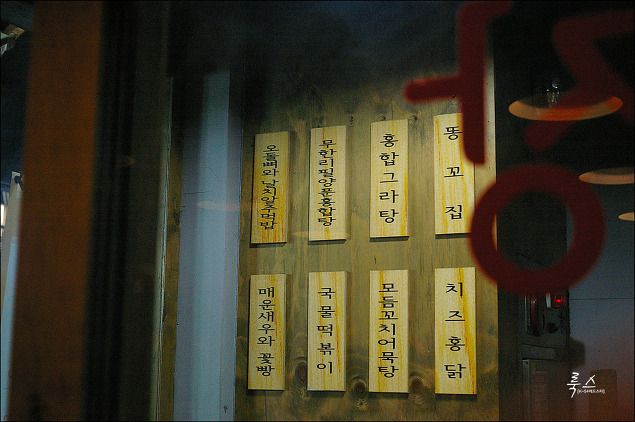 오돌뼈와날치알주먹밥
무한리필양푼홍합탕
홍합그라탕
똥꼬집
매운새우와꽃빵
국물떡볶이
모듬꼬치어묵탕
치즈홍닭
룩스